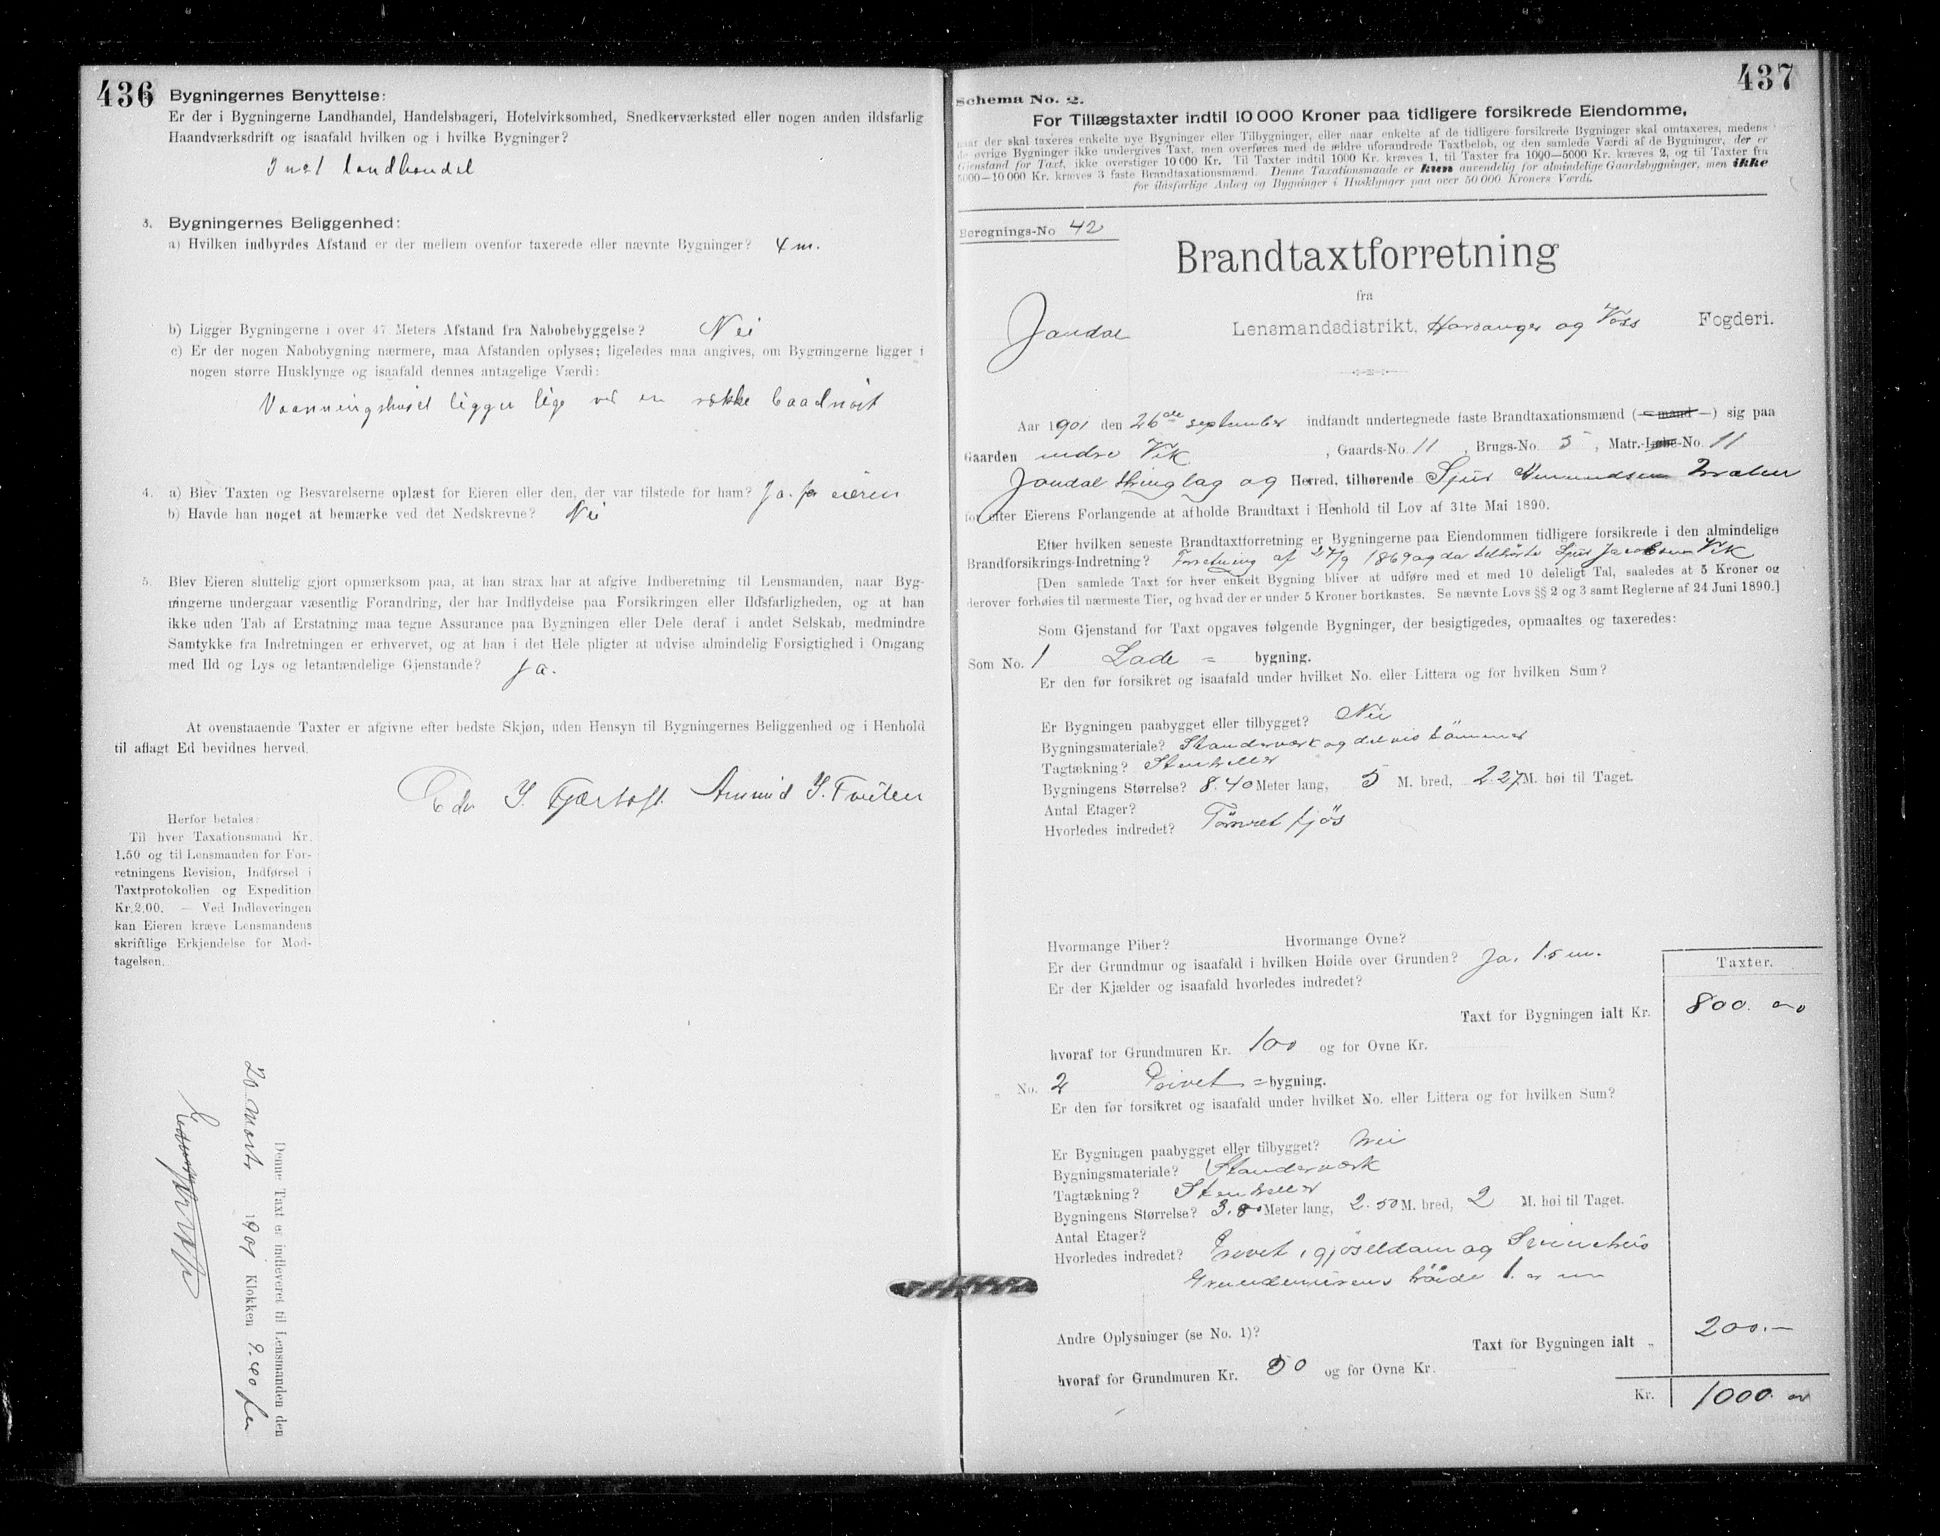 436
Bygningernes Benyttelse:
Er der i Bygningerne Landhandel, Handelsbageri, Hotelvirksomhed, Snedkerværksted eller nogen anden ildsfarlig
Haandværksdrift og isaafald hvilken og i hvilke Bygninger?
landhandel
3. Bygningernes Beliggenhed:
a) Hvilken indbyrdes Afstand er der mellem ovenfor taxerede eller nævnte Bygninger? 4 m.
b) Ligger Bygningerne i over 47 Meters Afstand fra Nabobebyggelse? Nei
c) Er der nogen Nabobygning nærmere, maa Afstanden oplyses; ligeledes maa angives, om Bygningerne ligger i
nogen større Husklynge og isaafald dennes antagelige Værdi:
Vaanningshuset ligger lige ved en række baadnøst
4. a) Blev Taxten og Besvarelserne oplæst for Eieren eller den, der var tilstede for ham? Ja. for eieren
b) Havde han noget at bemærke ved det Nedskrevne? Nei
5. Blev Eieren sluttelig gjort opmærksom paa, at han strax har at afgive Indberetning til Lensmanden, naar Byg-
ningerne undergaar væsentlig Forandring, der har Indflydelse paa Forsikringen eller Ildsfarligheden, og at han
ikke uden Tab af Erstatning maa tegne Assurance paa Bygningen eller Dele deraf i andet Selskab, medmindre
Samtykke fra Indretningen er erhvervet, og at han i det Hele pligter at udvise almindelig Forsigtighed i Omgang
med Ild og Lys og letantændelige Gjenstande? Ja.
At ovenstaaende Taxter er afgivne efter bedste Skjøn, uden Hensyn til Bygningernes Beliggenhed og i Henhold
til aflagt Ed bevidnes herved.
Amund J. Tveiten
Herfor betales:
Til hver Taxationsmand Kr.
1.50 og til Lensmanden for For-
retningens Revision, Indførsel i
Taxtprotokollen og Expedition
Kr. 2.00. — Ved Indleveringen
kan Eieren kræve Lensmandens
skriftlige Erkjendelse for Mod-
tagelsen.
Denne Taxt er indleveret til Lensmanden den
20 Marts 1901 Klokken 9.40 fm
437
Schema No. 2.
For Tillægstaxter indtil 10 000 Kroner paa tidligere forsikrede Eiendomme,
naar der skal taxeres enkelte nye Bygninger eller Tilbygninger, eller naar enkelte af de tidligere forsikrede Bygninger skal omtaxeres, medens
de øvrige Bygninger ikke undergives Taxt, men overføres med de ældre uforandrede Taxtbeløb, og den samlede Værdi af de Bygninger, der er
Gjenstand for Taxt, ikke overstiger 10 000 Kr. Til Taxter indtil 1000 Kr. kræves 1, til Taxter fra 1000—5000 Kr. kræves 2, og til Taxter fra
5000—10 000 Kr. kræves 3 faste Brandtaxationsmænd. Denne Taxationsmaade er kun anvendelig for almindelige Gaardsbygninger, men ikke
for ildsfarlige Anlæg og Bygninger i Husklynger paa over 50 000 Kroners Værdi.
Beregnings-No 42
Brandtaxtforretning
fra
Jondal Lensmandsdistrikt, Hardanger og Voss Fogderi.
Aar 1901 den 26de september indfandt undertegnede faste Brandtaxationsmænd (— mand —) sig paa
Gaarden indre Vik, Gaards-No. 11, Brugs-No. 5, Matr.-Løbe-No. 11
Jondal thinglag og Herred, tilhørende Sjur Amundsen
for efter Eierens Forlangende at afholde Brandtaxt i Henhold til Lov af 31te Mai 1890.
Efter hvilken seneste Brandtaxtforretning er Bygningerne paa Eiendommen tidligere forsikrede i den almindelige
Brandforsikrings-Indretning? Forretning af 27/9 1869 og da tilhørte Sjur Jacobsen Vik
[Den samlede Taxt for hver enkelt Bygning bliver at udføre med et med 10 deleligt Tal, saaledes at 5 Kroner og
derover forhøies til nærmeste Tier, og hvad der er under 5 Kroner bortkastes. Se nævnte Lovs §§ 2 og 3 samt Reglerne af 24 Juni 1890.]
Som Gjenstand for Taxt opgaves følgende Bygninger, der besigtigedes, opmaaltes og taxeredes:
Som No. 1 Lade = bygning.
Er den før forsikret og isaafald under hvilket No. eller Littera og for hvilken Sum?
Er Bygningen paabygget eller tilbygget? Nei
Bygningsmateriale? Standerværk og delvis tømmer
Tagtækning? Stenheller
Bygningens Størrelse? 8.40 Meter lang, 5 M. bred, 2.27 M. høi til Taget.
Antal Etager?
Hvorledes indredet? fjøs
Hvormange Piber? Hvormange Ovne?
Er der Grundmur og isaafald i hvilken Høide over Grunden? Ja, 1.5 m.
Er der Kjælder og isaafald hvorledes indredet?
Taxter.
Taxt for Bygningen ialt Kr. 800.
hvoraf for Grundmuren Kr. 100 og for Ovne Kr.
" No. 2 Privet = bygning.
Er den før forsikret og isaafald under hvilket No. eller Littera og for hvilken Sum?
Er Bygningen paabygget eller tilbygget? Nei
Bygningsmateriale? Standerværk
Tagtækning? Stenheller
Bygningens Størrelse? 3.80 Meter lang, 2.50 M. bred, 2 M. høi til Taget.
Antal Etager?
Hvorledes indredet? Privet, gjøseldam og Svinehus
Grundmurens høide 1. m
Andre Oplysninger (se No. 1)?
Taxt for Bygningen ialt " 200.—
hvoraf for Grundmuren Kr. 50 og for Ovne Kr.
Kr. 1000.